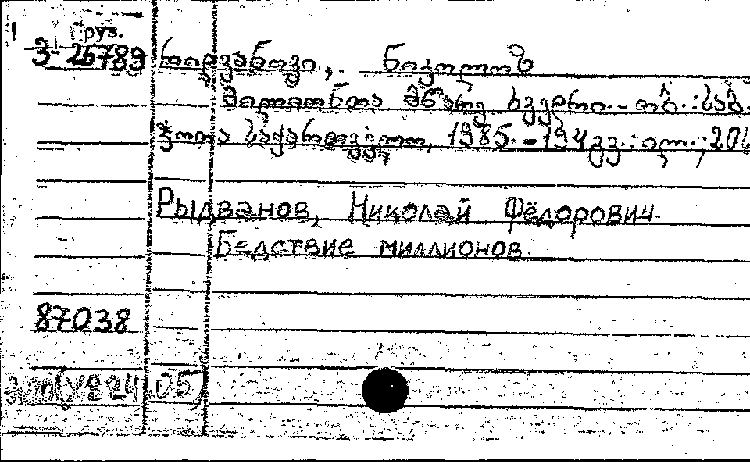 Груз.
3-26789
რიდვანოვი, ნიკოლოზ
მილიონთა მწარე ხვედრი. - თბ.: საბ
ჭოთა საქართველო, 1985. - 194 გვ.: ილ.; 20
Рыдванов, Николай Фёдорович
Бедствие миллионов.
87038